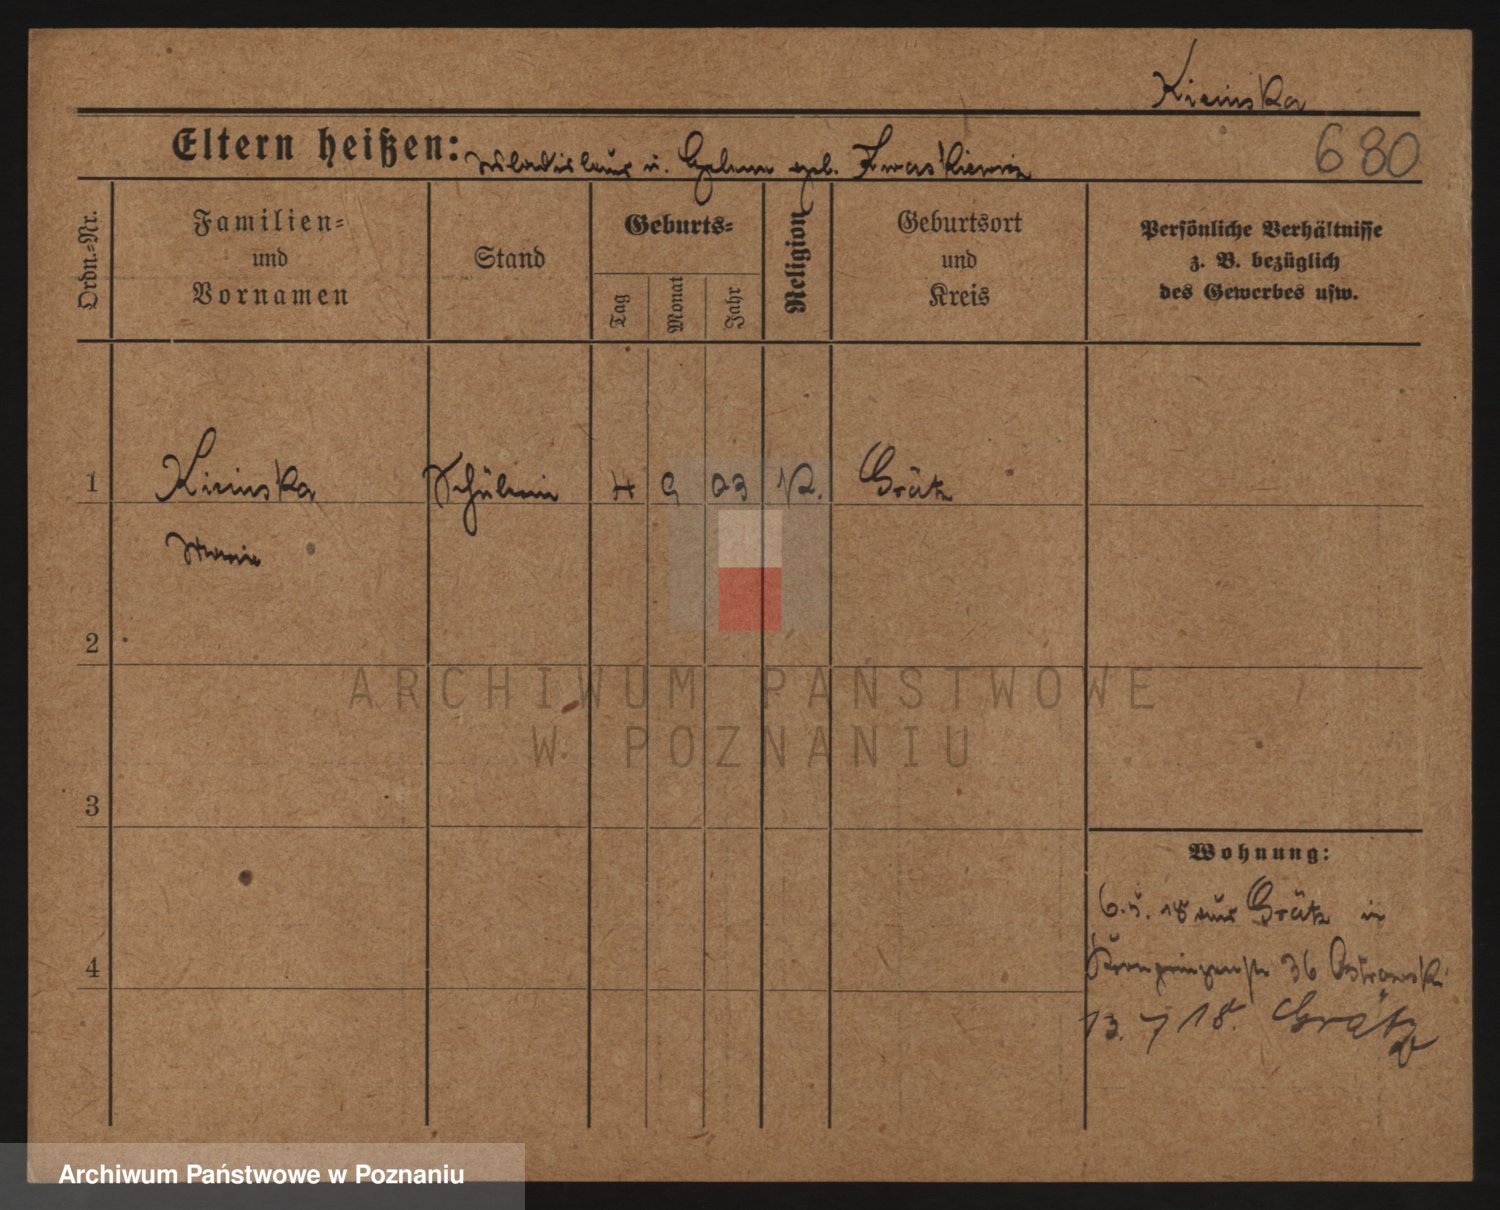 Kirinska
680
Eltern heißen: Wladislaus u. Helene geb. Iwaskiewicz
Ordn.-Nr.
Familien-
und
Vornamen
Stand
Geburts-
Tag
Monat
Jahr
Religion
Geburtsort
und
Kreis
Persönliche Verhältnisse
z. B. bezüglich
des Gewerbes usw.
1 Kirinska Schülerin 4 9 03 K. Grätz
Marie
2
ARCHIWUM PAŃSTWOWE
W POZNANIU
3
Wohnung:
6.5.18 aus Grätz in
Kronprinzenstr 36 Ostrowski
4
13. 7 18. Grätz
Archiwum Państwowe w Poznaniu